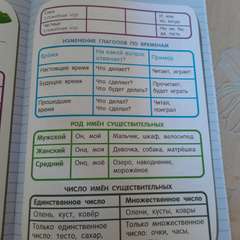 служебная чср
И, или,
но, когда
Частица
служебная чср
Не, ни, бы,
ли, пусть
ИЗМЕНЕНИЕ ГЛАГОЛОВ ПО ВРЕМЕНАМ
Время
На какой вопрос
отвечает?
Пример
Настоящее время
Что делает?
Читает, играет
Будущее время
Что сделает?
Что будет делать?
Прочитает,
будет играть
Прошедшее
время
Что делал?
Читал,
поиграл
РОД ИМЁН СУЩЕСТВИТЕЛЬНЫХ
Мужской Он, мой Мальчик, шкаф, велосипед
Женский Она, моя Девочка, собака, матрёшка
Средний Оно, моё Озеро, наводнение,
мороженое
ЧИСЛО ИМЁН СУЩЕСТВИТЕЛЬНЫХ
Единственное число Множественное число
Олень, куст, ковёр Олени, кусты, ковры
Только единственное
число: тесто, сахар,
Только множественное
число: очки, часы,